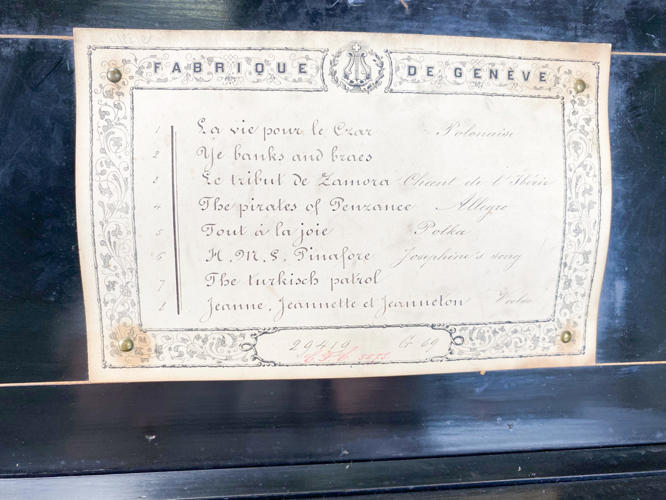 FABRIQUE DE GENÈVE
1 La vie pour le Czar Polonaise
2 Ye banks and braes
3 Le tribut de Zamora Chant de l'Ibérie
4 The pirates of Penzance Allegro
5 Tout à la joie Polka
6 H. M. S. Pinafore Josephine's song
7 The turkisch patrol
8 Jeanne, Jeannette et Jeanneton Valse
29419 G. 69